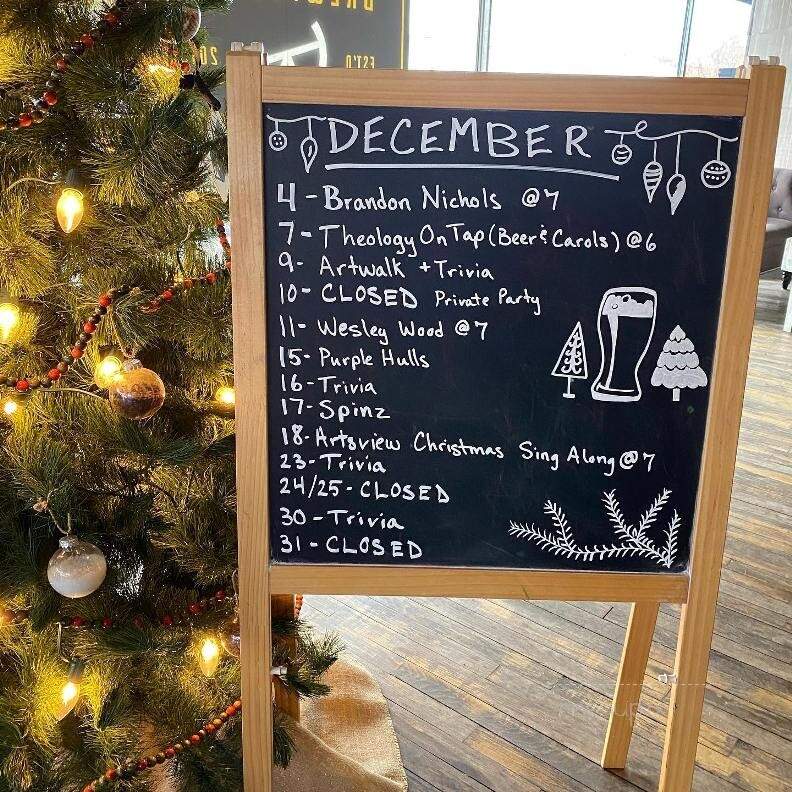 EST'D
20
DECEMBER
4 - Brandon Nichols @7
7 - Theology On Tap (Beer & Carols) @6
9 - Artwalk + Trivia
10 - CLOSED Private Party
11 - Wesley Wood @7
15 - Purple Hulls
16 - Trivia
17 - Spinz
18 - Artsview Christmas Sing Along @7
23 - Trivia
24/25 - CLOSED
30 - Trivia
31 - CLOSED